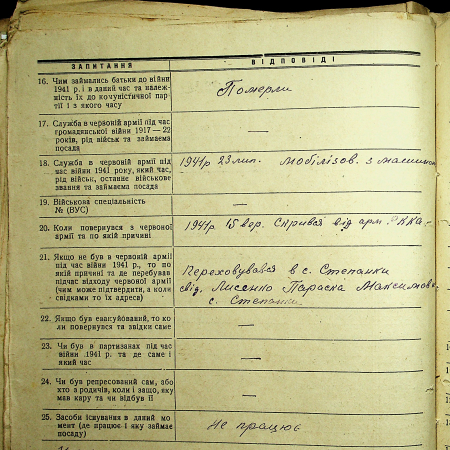 ЗАПИТАННЯ
ВІДПОВІДІ
16. Чим займались батьки до війни
1941 р. і в даний час та належ-
ність їх до комуністичної пар-
тії і з якого часу
Померли
17. Служба в червоній армії під час
громадянської війни 1917—22
років, рід військ та займаєма
посада
—
18. Служба в червоній армії під
час війни 1941 року, який час,
рід військ, останнє військове
звання та займаєма посада
1941р 23 лип. Мобілізов. з машиною
19. Військова спеціальність
№ (ВУС)
—
20. Коли повернувся з червоної
армії та по якій причині
1941р. 15 вер. Скрився від арм. РККА.
21. Якщо не був в червоній армії
під час війни 1941 р., то по
якій причині та де перебував
під час відходу червоної армії
(чим може підтвердити, а коли
свідками то їх адреса)
Переховувався в с. Степанки
свід. Лисенко Параска Максимов.
с. Степанки
22. Якщо був евакуйований, то ко-
ли повернувся та звідки саме
—
23. Чи був в партизанах під час
війни 1941 р. та де саме і
який час
—
24. Чи був репресований сам, або
хто з родичів, коли і защо, яку
мав кару та чи відбув її
—
25. Засоби існування в даний мо-
мент (де працює і яку займає
посаду)
Не працює